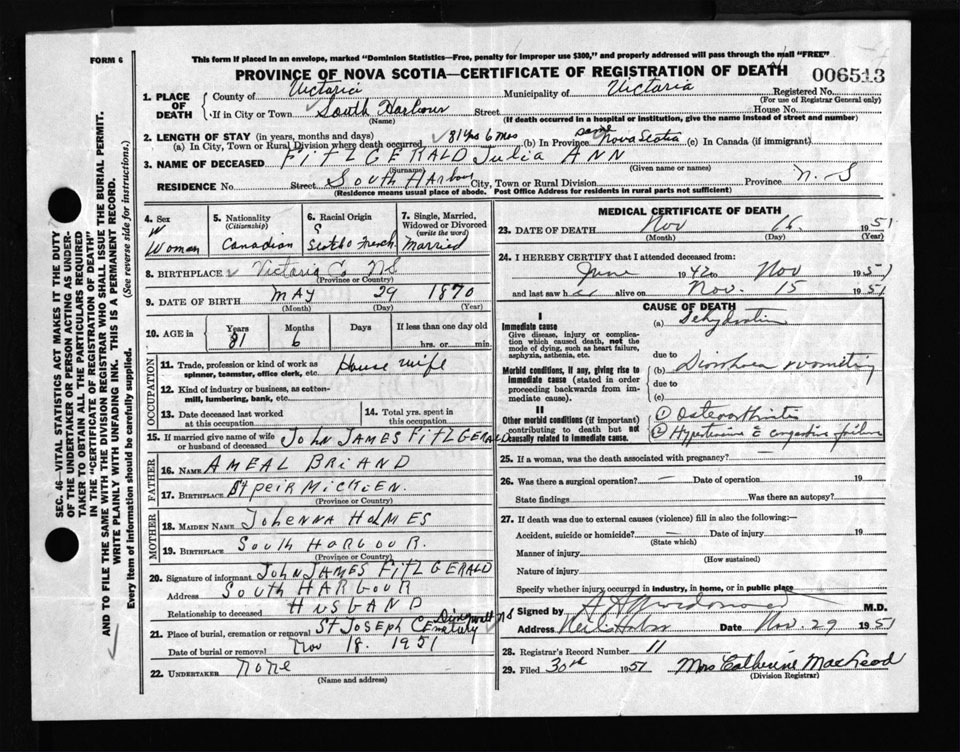 FORM 6
This form if placed in an envelope, marked "Dominion Statistics—Free, penalty for improper use $300," and properly addressed will pass through the mail "FREE"
PROVINCE OF NOVA SCOTIA—CERTIFICATE OF REGISTRATION OF DEATH
006513
1. PLACE OF DEATH
County of Victoria Municipality of Victoria Registered No.
(For use of Registrar General only)
If in City or Town South Harbour Street House No.
(Name) (If death occurred in a hospital or institution, give the name instead of street and number)
2. LENGTH OF STAY (in years, months and days)
(a) In City, Town or Rural Division where death occurred 81 yrs 6 mos (b) In Province same Nova Scotia (c) In Canada (if immigrant)
3. NAME OF DECEASED FITLGERALD Julia ANN
(Surname) (Given name or names)
RESIDENCE No. Street South Harbour City, Town or Rural Division Province N.S
(Residence means usual place of abode. Post Office Address for residents in rural parts not sufficient)
4. Sex
W
Woman
5. Nationality
(Citizenship)
Canadian
6. Racial Origin
Scotch French
7. Single, Married, Widowed or Divorced
(write the word)
Married
8. BIRTHPLACE Victoria Co NS
(Province or Country)
9. DATE OF BIRTH MAY 29 1870
(Month) (Day) (Year)
10. AGE in Years Months Days If less than one day old
81 6 hrs. or min.
OCCUPATION
11. Trade, profession or kind of work as spinner, teamster, office clerk, etc. House wife
12. Kind of industry or business, as cotton-mill, lumbering, bank, etc.
13. Date deceased last worked at this occupation
14. Total yrs. spent in this occupation
15. If married give name of wife or husband of deceased JOHN JAMES FITLGERALD
FATHER
16. NAME AMEAL BRIAND
17. BIRTHPLACE St peir MickIEN.
(Province or Country)
MOTHER
18. MAIDEN NAME JOHENNA HOLMES
19. BIRTHPLACE SOUTH HARGOUR.
(Province or Country)
20. Signature of informant JOHN JAMES FITLGERALD
Address SOUTH HARGOUR
Relationship to deceased HUSGAND
21. Place of burial, cremation or removal ST JOSEPH CEMATARY Dingwall NS
Date of burial or removal Nov 18. 1951
22. UNDERTAKER NONE
(Name and address)
MEDICAL CERTIFICATE OF DEATH
23. DATE OF DEATH Nov 16. 1951
(Month) (Day) (Year)
24. I HEREBY CERTIFY that I attended deceased from:
June 1942 to Nov 1951
and last saw her alive on Nov. 15 1951
CAUSE OF DEATH
I
Immediate cause
Give disease, injury or complication which caused death, not the mode of dying, such as heart failure, asphyxia, asthenia, etc.
(a) Dehydration
due to
Morbid conditions, if any, giving rise to immediate cause (stated in order proceeding backwards from immediate cause).
(b) Diarrhoea & vomiting
due to
(c)
II
Other morbid conditions (if important) contributing to death but not causally related to immediate cause.
① Osteoarthritis
② Hypertensive & congestive failure
25. If a woman, was the death associated with pregnancy?
26. Was there a surgical operation? — Date of operation 19
State findings Was there an autopsy?
27. If death was due to external causes (violence) fill in also the following:—
Accident, suicide or homicide? — Date of injury 19
(State which)
Manner of injury
(How sustained)
Nature of injury
Specify whether injury occurred in industry, in home, or in public place
Signed by M.D.
Address Neil's Hrbr Date Nov. 29 1951
28. Registrar's Record Number 11
29. Filed 30th 1951 Mrs Catherine MacLeod
(Division Registrar)
SEC. 46—VITAL STATISTICS ACT MAKES IT THE DUTY
OF THE UNDERTAKER OR PERSON ACTING AS UNDER-
TAKER TO OBTAIN ALL THE PARTICULARS REQUIRED
IN THE "CERTIFICATE OF REGISTRATION OF DEATH"
AND TO FILE THE SAME WITH THE DIVISION REGISTRAR WHO SHALL ISSUE THE BURIAL PERMIT.
WRITE PLAINLY WITH UNFADING INK. THIS IS A PERMANENT RECORD.
Every item of information should be carefully supplied. (See reverse side for instructions.)